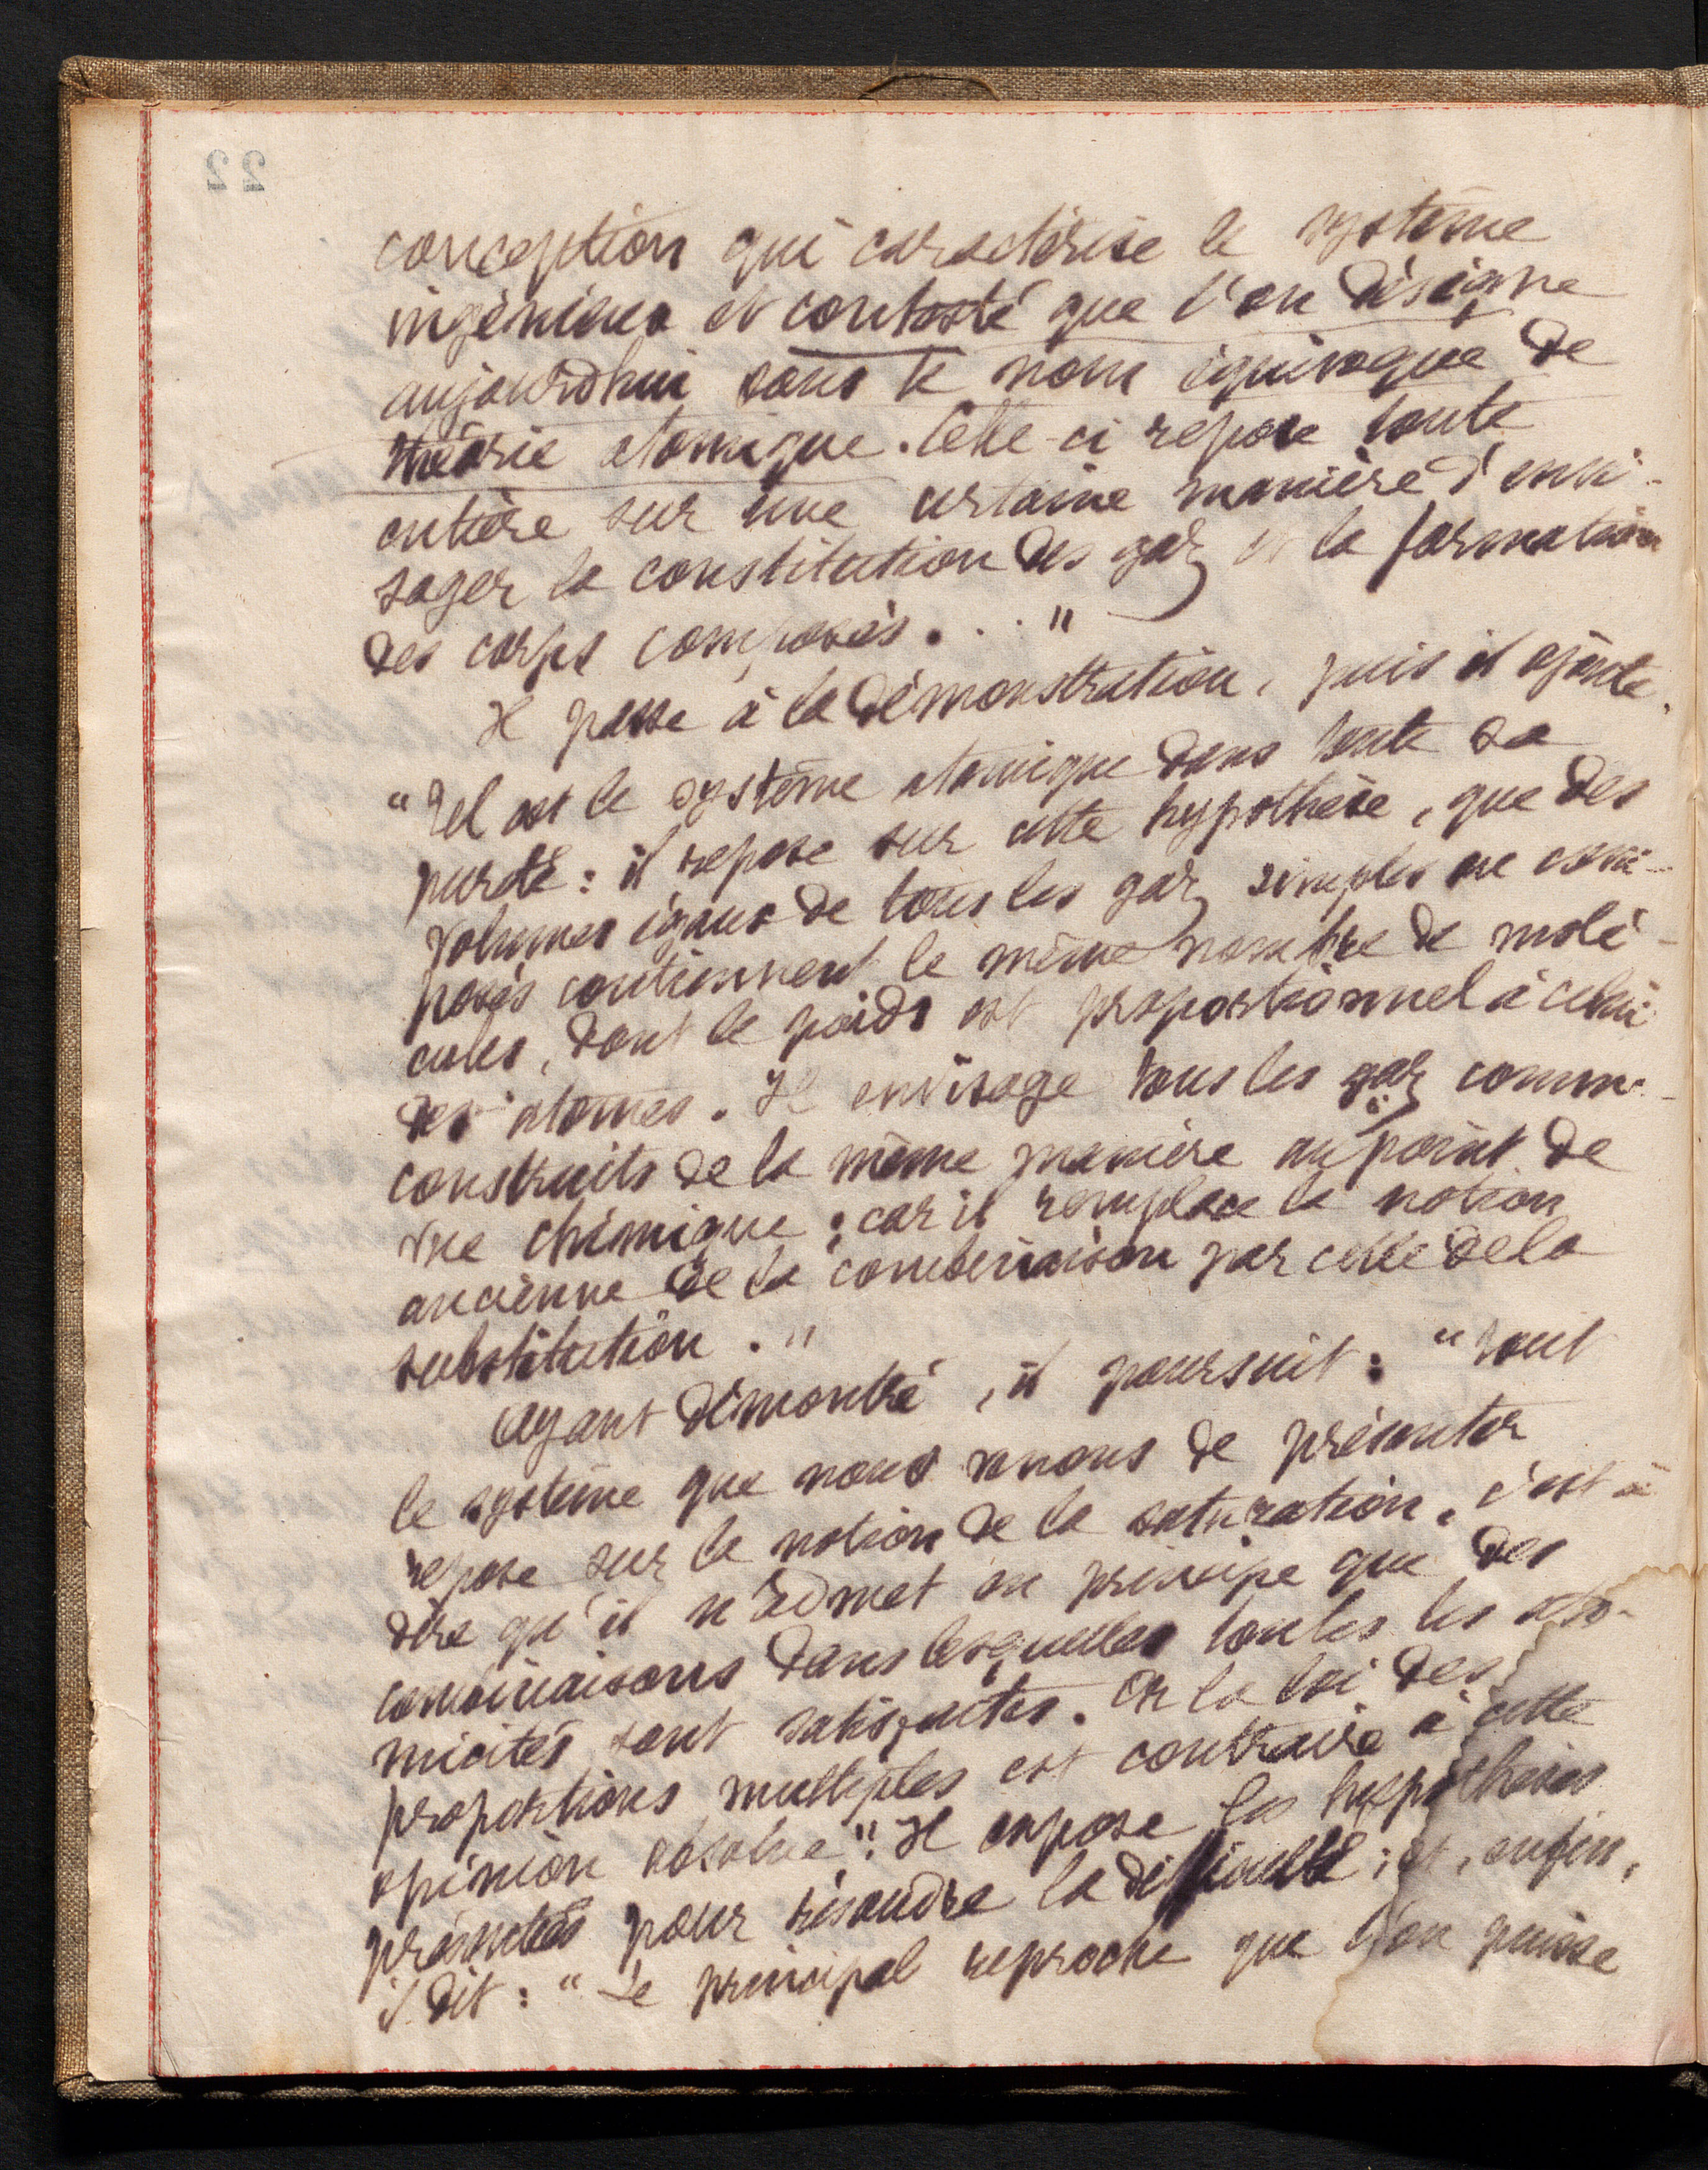 22
conception qui caractérise le système
ingénieux et contesté que l'on désigne
aujourd'hui sous le nom équivoque de
théorie atomique. Celle-ci repose toute
entière sur une certaine manière d'envi-
sager la constitution des gaz et la formation
des corps composés. . . "
Il passe à la démonstration, puis il ajoute,
"Tel est le système atomique dans toute sa
pureté : il repose sur cette hypothèse, que des
volumes égaux de tous les gaz simples ou com-
posés contiennent le même nombre de molé-
cules, dont le poids est proportionnel à celui
des atomes. Il envisage tous les gaz comme
construits de la même manière au point de
vue chimique ; car il remplace la notion
ancienne de la combinaison par celle de la
substitution. "
Ayant démontré, il poursuit : "Tout
le système que nous venons de présenter
repose sur la notion de la saturation, c'est à
dire qu'il n'admet en principe que des
combinaisons dans lesquelles toutes les ato-
micités sont satisfaites. Or la loi des
proportions multiples est contraire à cette
opinion absolue". Il expose les hypothèses
présentées pour résoudre la difficulté ; et, enfin,
il dit : "Le principal reproche que l'on puisse